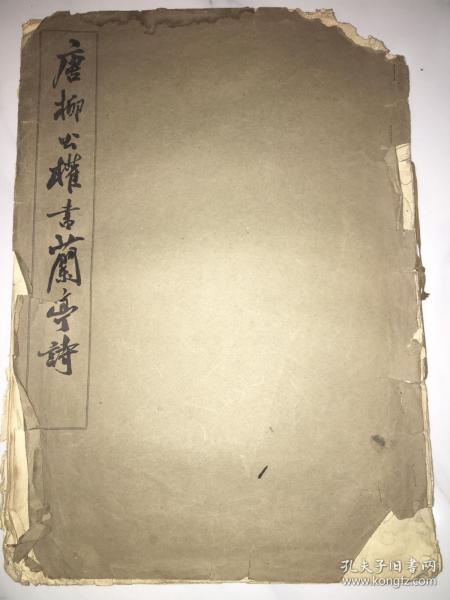 唐柳公權書蘭亭詩
孔夫子旧书网
www.kongfz.com